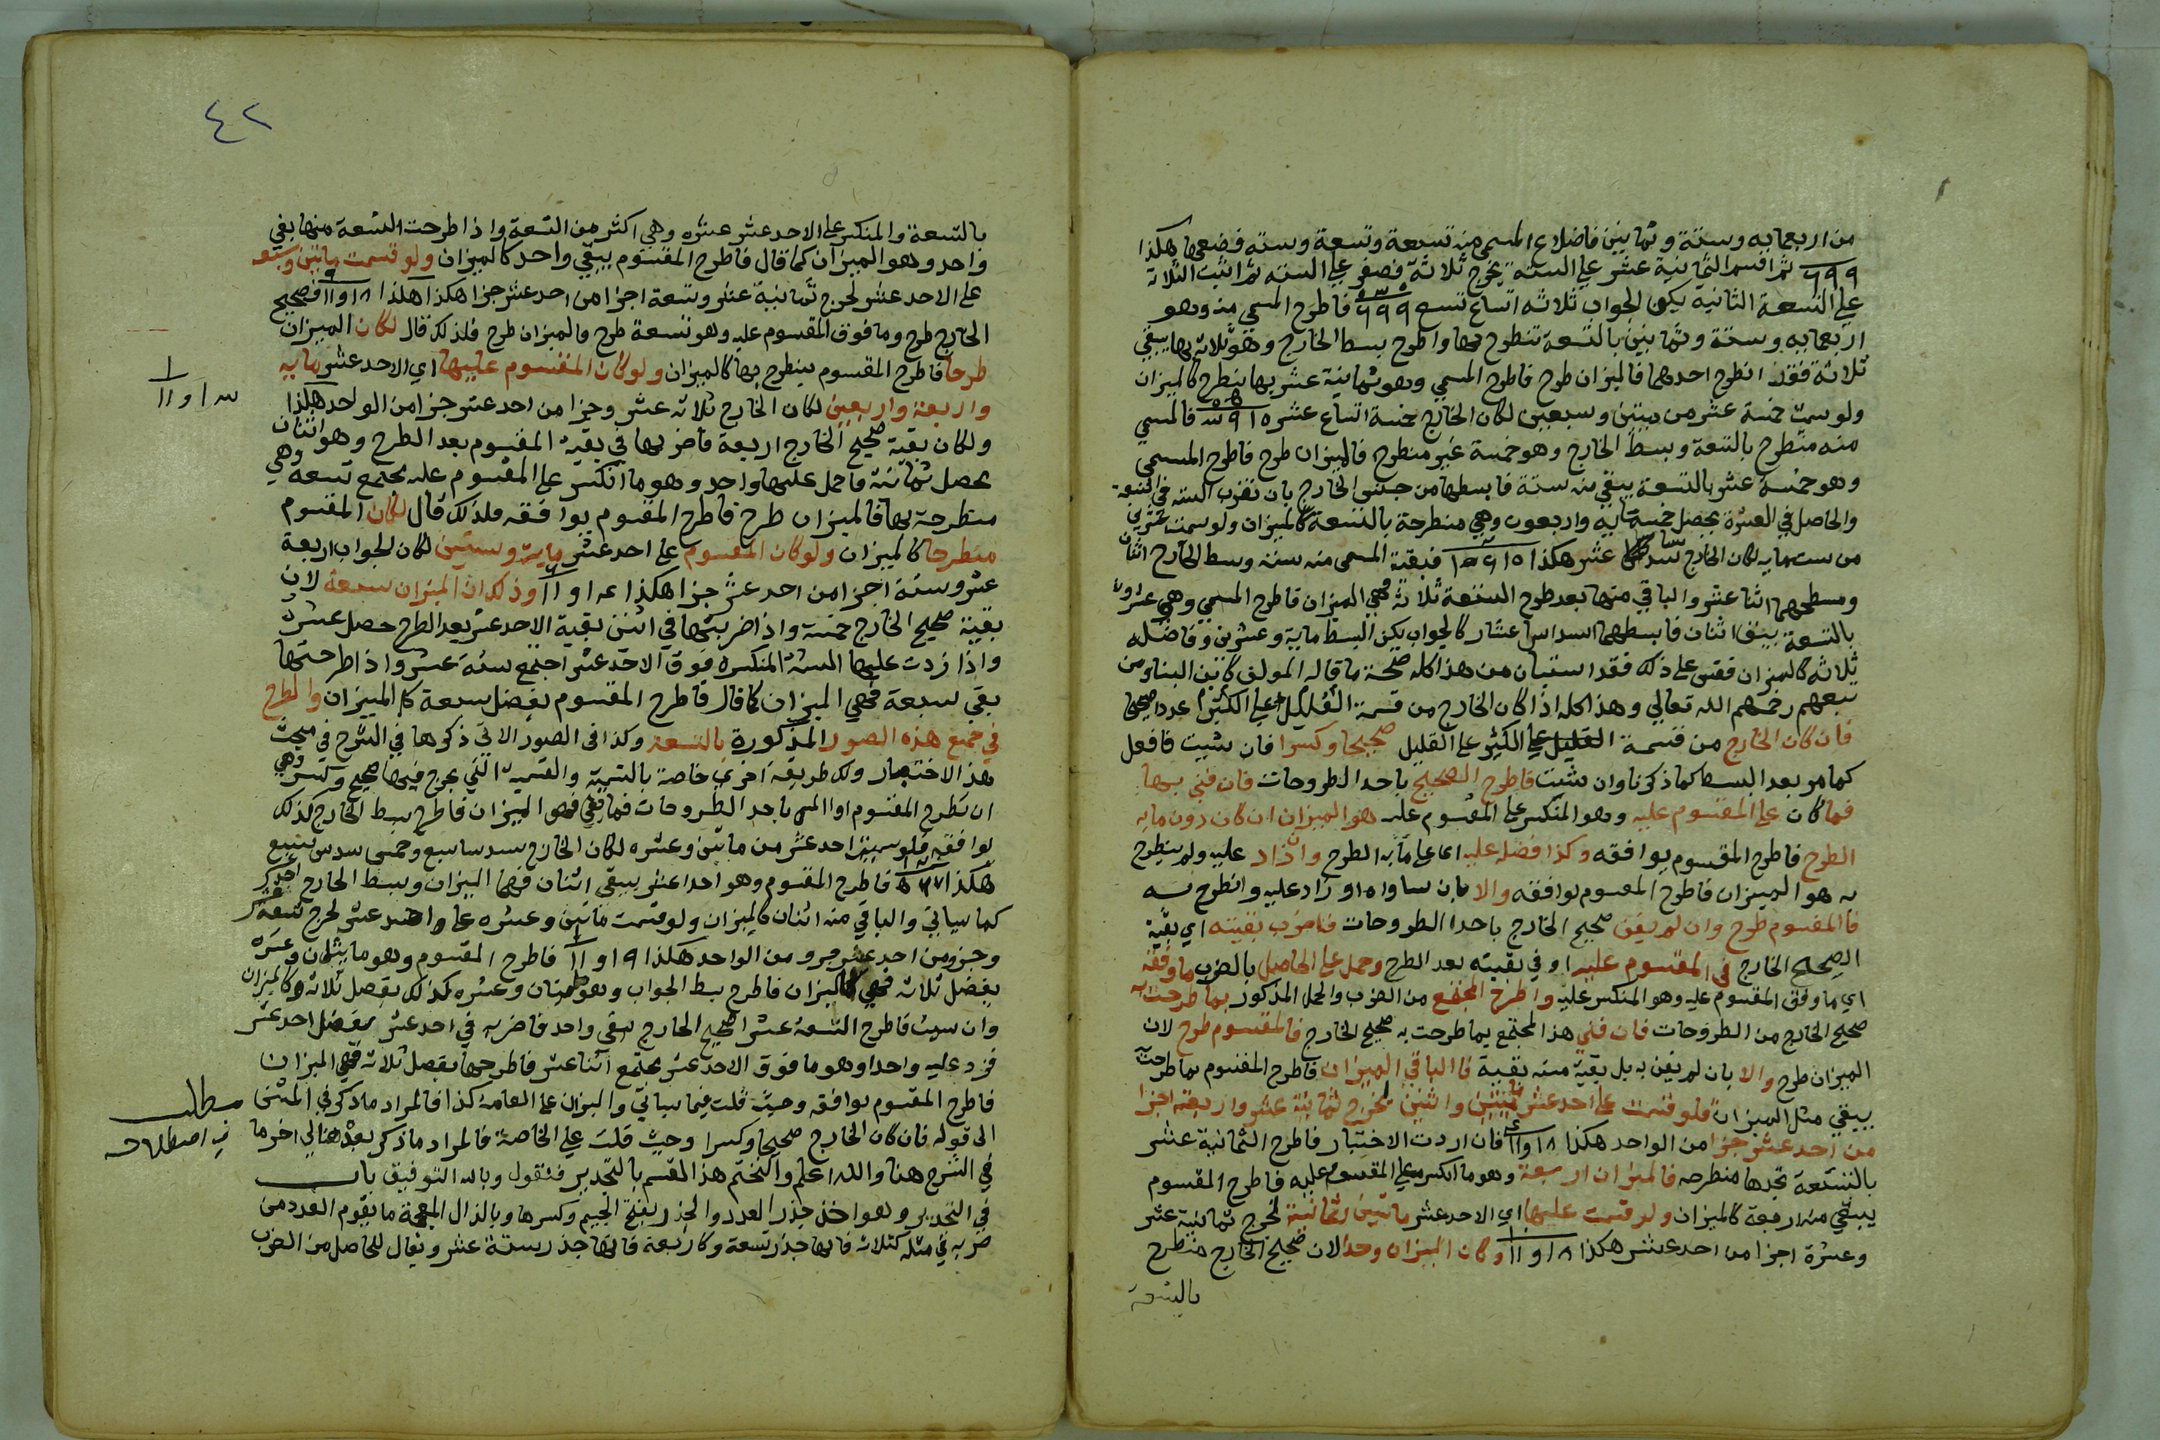 من اربعمايه وستة وثمانين فاضلاع المسمى منه تسعة وتسعة وستة فضعها هكذا
٩ ٩ ٦ ثم اقسم الثمانية عشر على الستة يخرج ثلاثة فصفر على الستة ثم اثبت الثلاثة
على التسعة الثانية يكن الجواب ثلاثة اتساع تسع فاطرح المسمى منه وهو
اربعمايه وستة وثمانين بالتسعة تنطرح بها واطرح بسط الخارج وهو ثلاثة بها يبقى
ثلاثة فقد انطرح احدهما فالميزان طرح فاطرح المسمى وهو ثمانية عشر بها ينطرح كالميزان
ولو سميت خمسة عشر من مئتين وسبعين لكان الخارج خمسة اتساع عشر فالمسمى
منه منطرح بالتسعة وبسط الخارج وهو خمسة غير منطرح فالميزان طرح فاطرح المسمى
وهو خمسة عشر بالتسعة يبقى منه ستة فابسطها من جنس الخارج بان تضرب الستة في التسعة
والحاصل في العشرة يحصل خمسمايه واربعون وهي منطرحة بالتسعة كالميزان ولو سميت عشرين
من ستمايه لكان الخارج عشر هكذا فبقية المسمى منه ستة وبسط الخارج اثنان
ومسطحهما اثنا عشر والباقي منها بعد طرح التسعة ثلاثة فهي الميزان فاطرح المسمى وهي عشرون
بالتسعة يبقى اثنان فابسطهما اسداس اعشار كالجواب يكن البسط ماية وعشرين وفاضله
ثلاثة كالميزان فقس على ذلك فقد استبان من هذا كله صحة ما قاله المولف كابن البنا ومن
تبعهم رحمهم الله تعالى وهذا كله اذا كان الخارج من قسمة القليل على الكثير عددا صحيحا
فان كان الخارج من قسمة الكثير على القليل صحيحا وكسرا فان شيت فافعل
كما مر بعد البسط كما ذكرنا وان شيت فاطرح الصحيح باحد الطروحات فان فني بها
فما كان على المقسوم عليه وهو المنكسر على المقسوم عليه هو الميزان ان كان دون ما به
الطرح فاطرح المقسوم يوافقه وكذا فضل عليه اي على ما به الطرح وان زاد عليه ولم ينطرح
به هو الميزان فاطرح المقسوم يوافقه والا بان ساواه او زاد عليه وانطرح به
فالمقسوم طرح وان لم يفن صحيح الخارج باحد الطروحات فاضرب بقيته اي بقية
الصحيح الخارج في المقسوم عليه او في بقيته بعد الطرح وحمل على الحاصل بالضرب ما وفقه
اي ما وفق المقسوم عليه وهو المنكسر عليه واطرح المجتمع من الضرب والحمل المذكور بما طرحت به
صحيح الخارج من الطروحات فان فني هذا المجتمع بما طرحت به صحيح الخارج فالمقسوم طرح لان
الميزان طرح والا بان لم يفن به بل بقية منه بقية فالباقي الميزان فاطرح المقسوم بما طرحت به
يبقى مثل الميزان فلو قسمت على احد عشر مئتين واثنين لخرج ثمانية عشر واربعة اجزا
من احد عشر جزا من الواحد هكذا ١٨ و ٤/١١ فان اردت الاختبار فاطرح الثمانية عشر
بالتسعة تجدها منطرحه فالميزان اربعة وهو ما انكسر على المقسوم عليه فاطرح المقسوم
يبقى منه اربعة كالميزان ولو قسمت عليها اي الاحد عشر مايتين وثمانية لخرج ثمانية عشر
وعشرة اجزا من احد عشر هكذا ١٨ و ١٠/١١ وكان الميزان وحدا لان صحيح الخارج منطرح
بالتسعة
٤٢
بالتسعة والمنكسر على الاحد عشر عشره وهي اكثر من التسعة واذا طرحت التسعة منها بقي
واحد وهو الميزان كما قال فاطرح المقسوم يبقى واحد كالميزان ولو قسمت مايتين وسبعه
على الاحد عشر لخرج ثمانية عشر وتسعة اجزا من احد عشر جزا هكذا هكذا ١٨ و ٩/١١ فصحيح
الخارج طرح وما فوق المقسوم عليه وهو تسعة طرح والميزان طرح فلذلك قال لكان الميزان
طرحا فاطرح المقسوم ينطرح بها كالميزان ولو كان المقسوم عليها اي الاحد عشر مايه
واربعة واربعين لكان الخارج ثلاثه عشر وجزا من احد عشر جزا من الواحد هكذا
ولكان بقية صحيح الخارج اربعة فاضربها في بقية المقسوم بعد الطرح وهو اثنان
يحصل ثمانية فاحمل عليها واحد وهو ما انكسر على المقسوم عليه يجتمع تسعة وهي
منطرحة بها فالميزان طرح فاطرح المقسوم يوافقه فلذلك قال لكان المقسوم
منطرحا كالميزان ولو كان المقسوم على احد عشر ماية وستين لكان الجواب اربعة
عشر وستة اجزا من احد عشر جزا هكذا ١٤ و ٦/١١ وذلك ان الميزان سبعة لان
بقية صحيح الخارج خمسة واذا ضربتها في اثنين بقية الاحد عشر بعد الطرح حصل عشرة
واذا زدت عليها الستة المنكسره فوق الاحد عشر اجتمع ستة عشر واذا طرحتها
بقي سبعة فهي الميزان كما قال فاطرح المقسوم يفضل سبعة كالميزان والطرح
في جميع هذه الصور المذكورة بالتسعة وكذا في الصور الاتي ذكرها في الشرح في مبحث
هذا الاختبار ولك طريقة اخرى خاصة بالتسمية والقسمة التي يخرج فيها صحيح وكسر وهي
ان تطرح المقسوم او المسمى باحد الطروحات فما بقي فهو الميزان فاطرح بسط الخارج كذلك
يوافقه فلو سميت احد عشر من مايتين وعشره لكان الخارج سدس سبع وخمس سدس سبع
هكذا فاطرح المقسوم وهو احد عشر يبقى اثنان فهما الميزان وبسط الخارج احد عشر
كما سياتي والباقي منه اثنان كالميزان ولو قسمت مائتين وعشره على احد عشر لخرج تسعة عشر
وجزو من احد عشر جزو من الواحد هكذا ١٩ و ١/١١ فاطرح المقسوم وهو مايتان وعشره
يفضل ثلاثه فهي الميزان فاطرح بسط الجواب وهو مئتان وعشره كذلك يفضل ثلاثه كالميزان
وان سيت فاطرح التسعة عشر الصحيح الخارج يبقى واحد فاضربه في احد عشر يفضل احد عشر
فزد عليه واحدا وهو ما فوق الاحد عشر يجتمع اثنا عشر فاطرحها يفضل ثلاثه فهي الميزان
فاطرح المقسوم يوافقه وحيث قلت فيما سياتي والميزان على العامة كذا فالمراد ما ذكر في المتن
الى قوله فان كان الخارج صحيحا وكسرا وحيث قلت على الخاصة فالمراد ما ذكر بعد هنا الى اخر ما
في الشرح هنا والله اعلم ولنختم هذا القسم بالتجدير فنقول وبالله التوفيق باب
في التجدير وهو اخذ جذر العدد والجذر بفتح الجيم وكسرها وبالذال المعجمة ما يقوم العدد من
ضربه في مثله كثلاثه فانها جذر تسعة وكاربعة فانها جذر ستة عشر ويقال للحاصل من الضرب
١٣ و ١/١١
مطلب
في اصطلاح